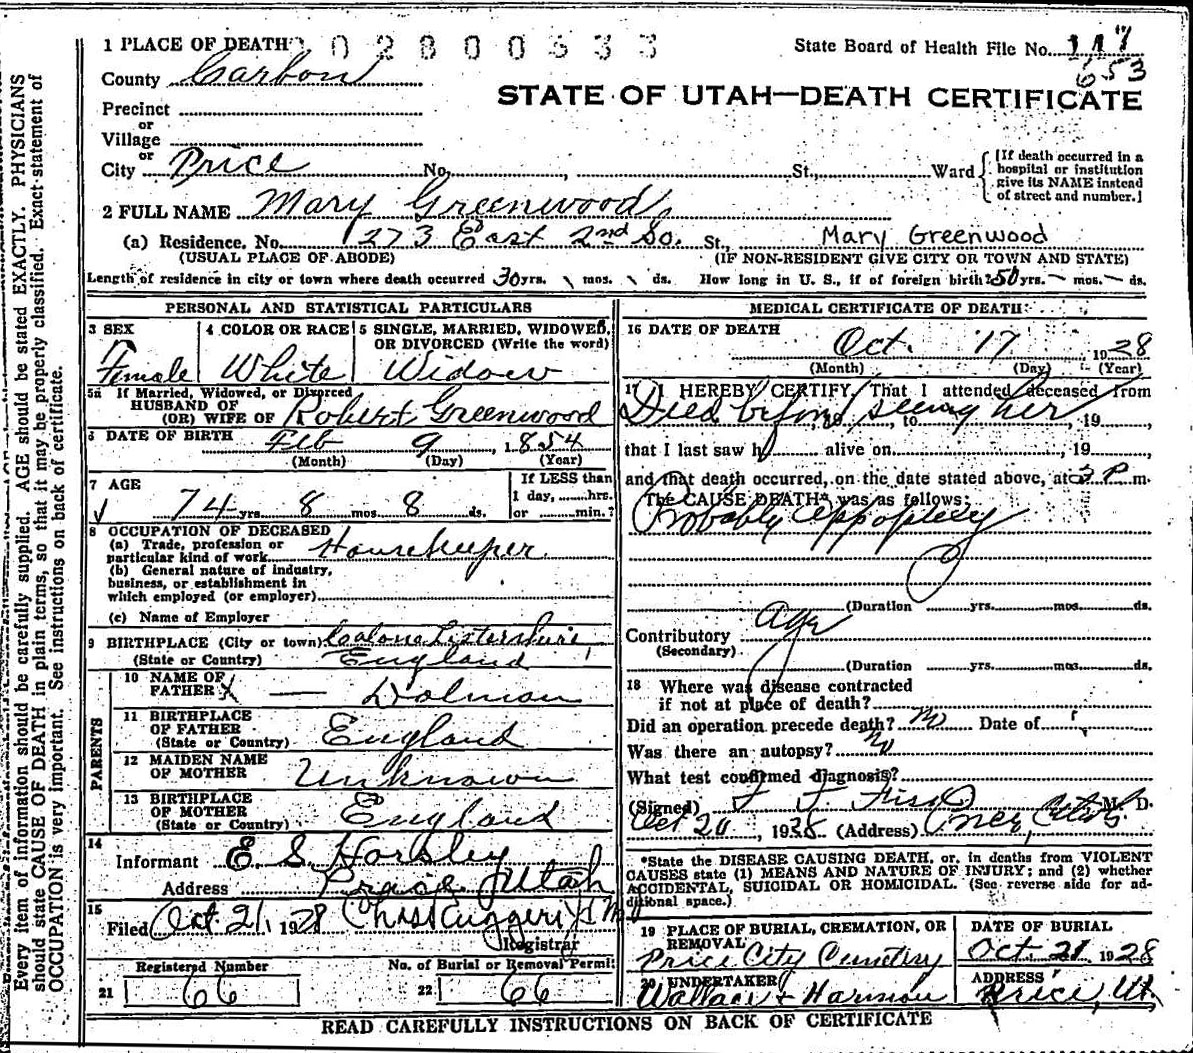 1 PLACE OF DEATH
02800633
State Board of Health File No. 117
653
County Carbon
STATE OF UTAH—DEATH CERTIFICATE
Precinct
or
Village
or
City Price No. , St., Ward
[If death occurred in a hospital or institution give its NAME instead of street and number.]
2 FULL NAME Mary Greenwood
(a) Residence. No. 273 East 2nd So. St., Mary Greenwood
(USUAL PLACE OF ABODE) (IF NON-RESIDENT GIVE CITY OR TOWN AND STATE)
Length of residence in city or town where death occurred 30 yrs. \ mos. \ ds. How long in U. S., if of foreign birth? 50 yrs. — mos. — ds.
PERSONAL AND STATISTICAL PARTICULARS
3 SEX Female
4 COLOR OR RACE White
5 SINGLE, MARRIED, WIDOWED, OR DIVORCED (Write the word) Widow
5a If Married, Widowed, or Divorced
HUSBAND OF
(OR) WIFE OF Robert Greenwood
6 DATE OF BIRTH Feb 9, 1854
(Month) (Day) (Year)
7 AGE
74 yrs. 8 mos. 8 ds.
If LESS than
1 day, hrs.
or min.?
8 OCCUPATION OF DECEASED
(a) Trade, profession or
particular kind of work Housekeeper
(b) General nature of industry,
business, or establishment in
which employed (or employer)
(c) Name of Employer
9 BIRTHPLACE (City or town)
(State or Country) England
PARENTS
10 NAME OF
FATHER X — Dolman
11 BIRTHPLACE
OF FATHER England
(State or Country)
12 MAIDEN NAME
OF MOTHER Unknown
13 BIRTHPLACE
OF MOTHER England
(State or Country)
14
Informant E S Horsley
Address Price Utah
15
Filed Oct 21, 1928
Registrar
Registered Number
21 66
No. of Burial or Removal Permit
22 66
MEDICAL CERTIFICATE OF DEATH
16 DATE OF DEATH
Oct. 17 1928
(Month) (Day) (Year)
17 I HEREBY CERTIFY, That I attended deceased from
Died before seeing her , 19 , to , 19 ,
that I last saw h alive on , 19 ,
and that death occurred, on the date stated above, at 3 P. m.
The CAUSE DEATH* was as follows:
Probably Appoplexy
(Duration yrs. mos. ds.
Contributory Age
(Secondary)
(Duration yrs. mos. ds.
18 Where was disease contracted
if not at place of death?
Did an operation precede death? no Date of
Was there an autopsy? no
What test confirmed diagnosis?
(Signed) F. F. Fisk M. D.
Oct 20, 1928 (Address) Price, Utah.
*State the DISEASE CAUSING DEATH, or, in deaths from VIOLENT
CAUSES state (1) MEANS AND NATURE OF INJURY; and (2) whether
ACCIDENTAL, SUICIDAL OR HOMICIDAL. (See reverse side for ad-
ditional space.)
19 PLACE OF BURIAL, CREMATION, OR
REMOVAL
Price City Cemetery
DATE OF BURIAL
Oct. 21 1928
20 UNDERTAKER
Wallace & Harmon
ADDRESS
Price, Ut.
READ CAREFULLY INSTRUCTIONS ON BACK OF CERTIFICATE
Every item of information should be carefully supplied. AGE should be stated EXACTLY. PHYSICIANS
should state CAUSE OF DEATH in plain terms, so that it may be properly classified. Exact statement of
OCCUPATION is very important. See instructions on back of certificate.